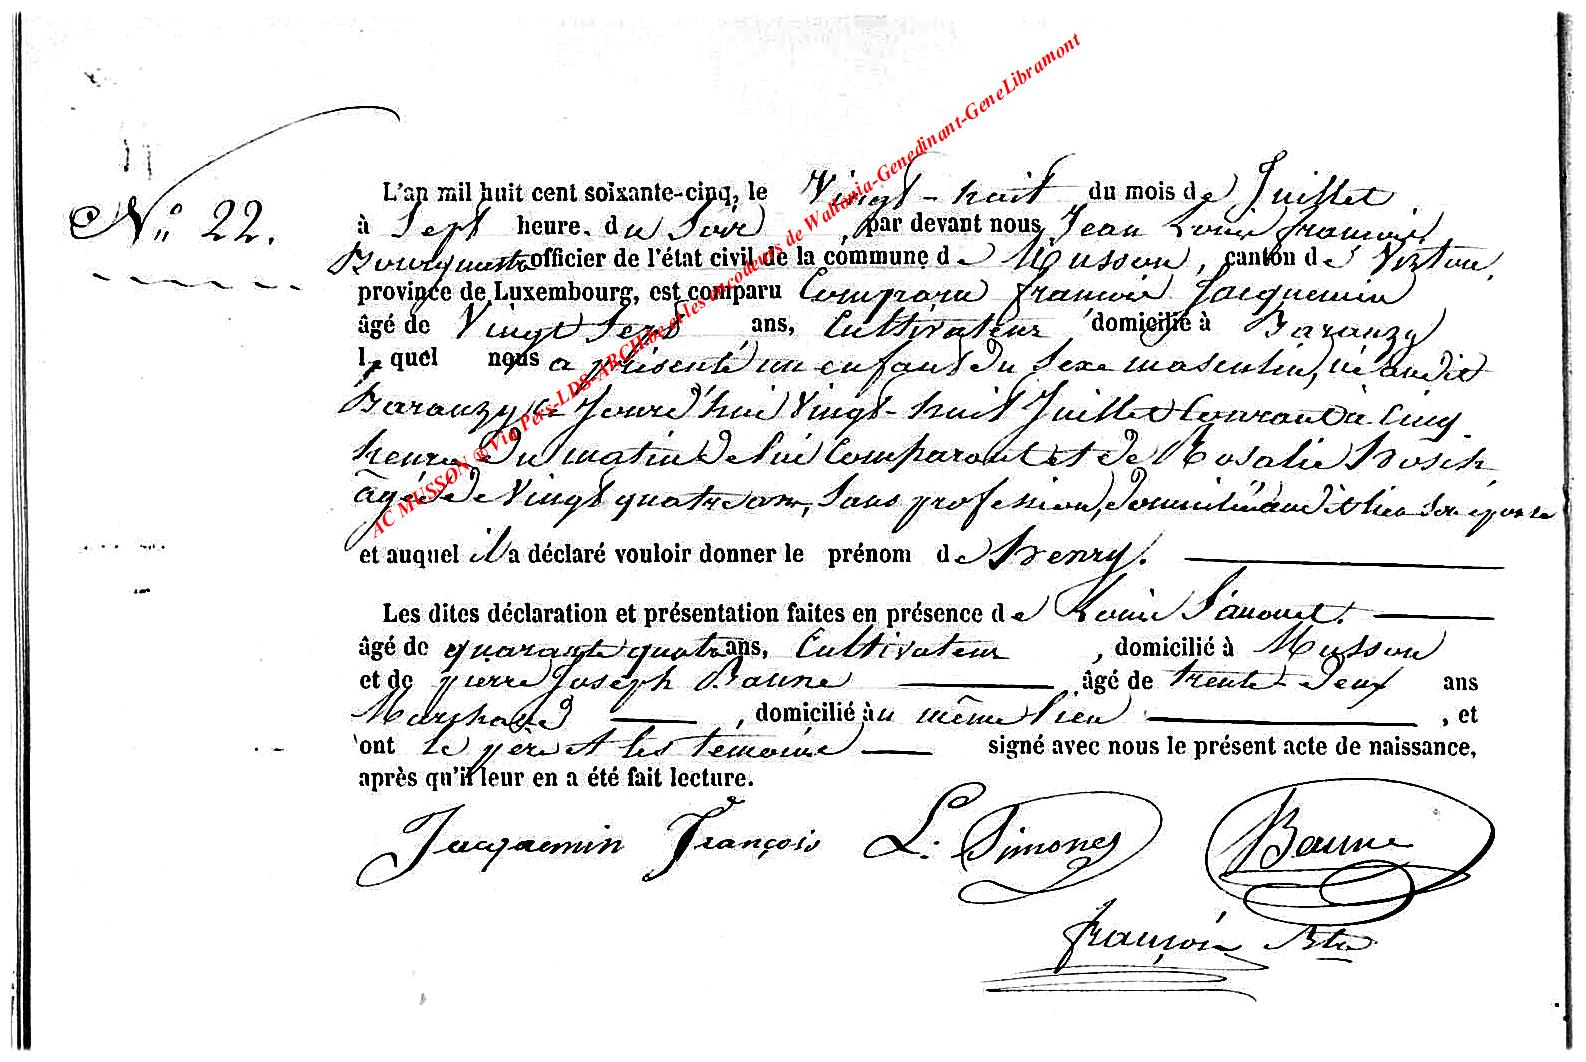 N° 22.
L'an mil huit cent soixante-cinq, le Vingt-huit du mois de Juillet
à Sept heure. du Soir, par devant nous Jean Louis françois,
Bourgmestre officier de l'état civil de la commune de Musson, canton de Virton,
province de Luxembourg, est comparu Comparu françois Jacquemin
âgé de Vingt Sept ans, Cultivateur domicilié à Baranzy
lequel nous a présenté un enfant du Sexe masculin, né audit
Baranzy ce Jourd'hui Vingt-huit Juillet Courant à Cinq
heures du matin de lui Comparant et de Rosalie Hosch
âgée de Vingt quatre ans, Sans profession, domiciliée audit lieu Son épouse
et auquel il a déclaré vouloir donner le prénom de Henry.
Les dites déclaration et présentation faites en présence de Louis Simonet.
âgé de quarante quatre ans, Cultivateur, domicilié à Musson
et de pierre Joseph Baune âgé de trente-deux ans
Marchand, domicilié au même lieu, et
ont le père et les témoins signé avec nous le présent acte de naissance,
après qu'il leur en a été fait lecture.
Jacquemin François L. Simonet Baune
françois
AC MUSSON @ Via Pers-LDS-ARCH.be et les encodeurs de Wallonia-Genedinant-GeneLibramont